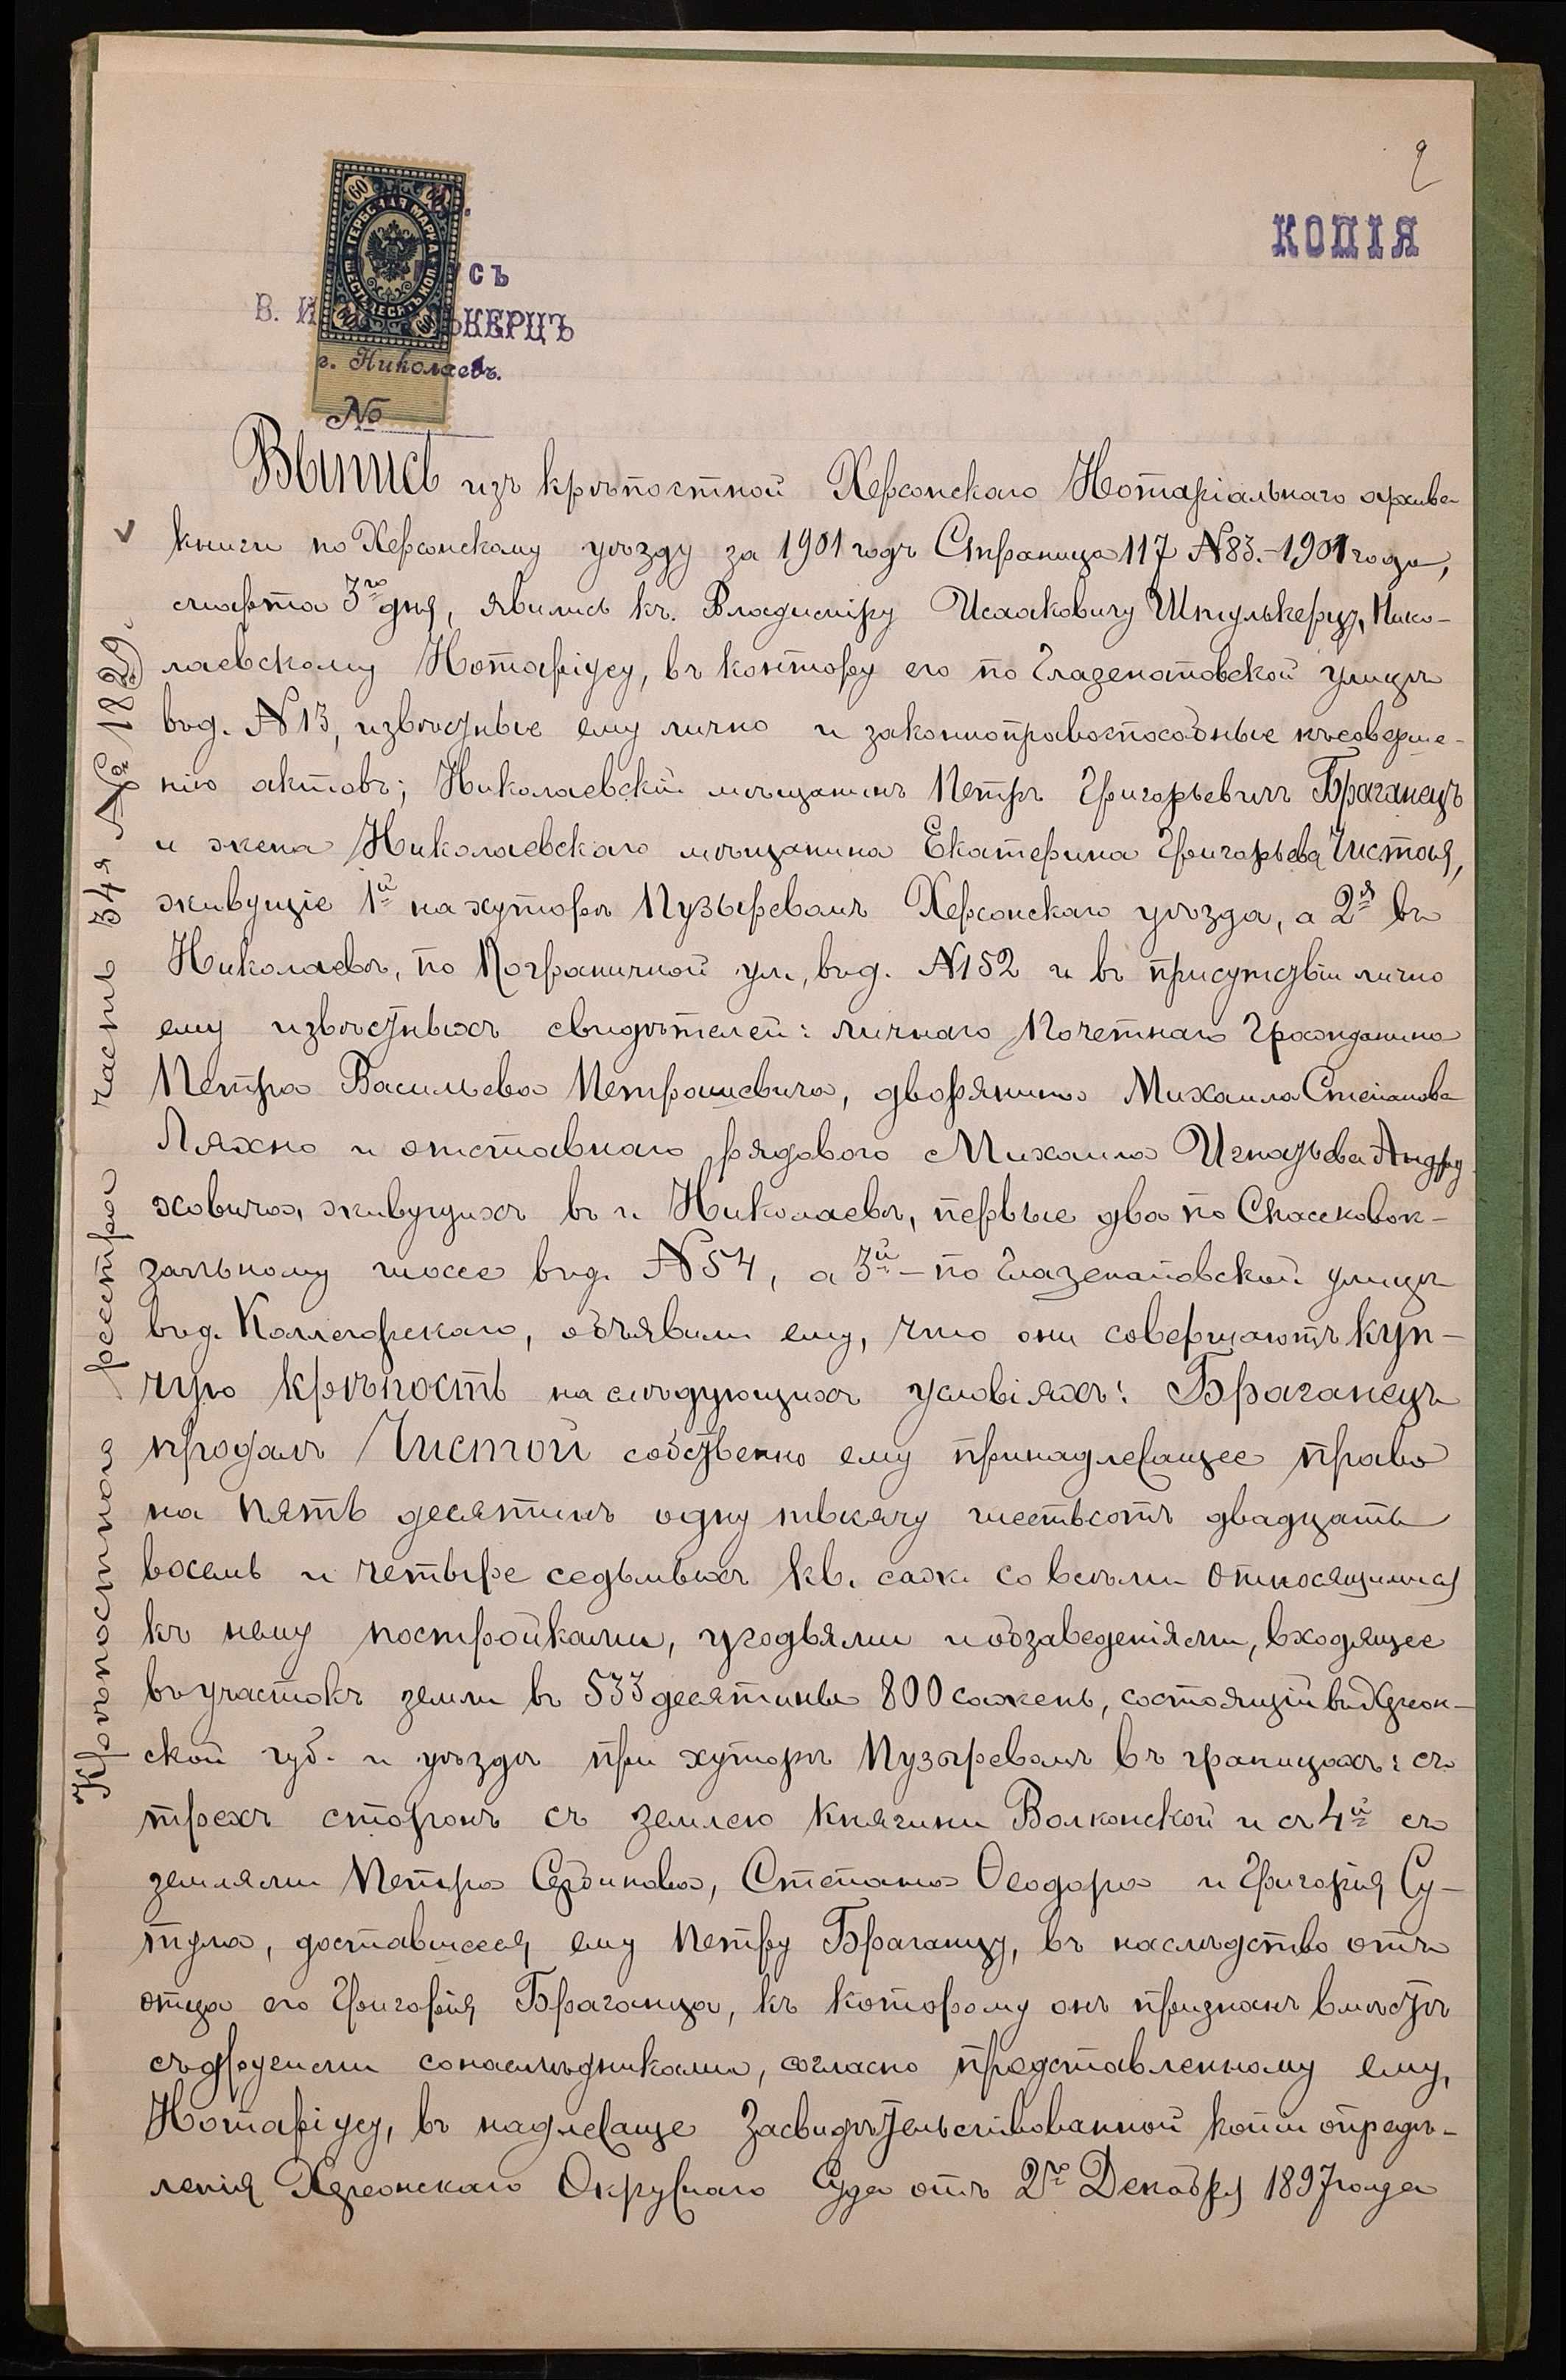 2
КОПІЯ
60 60
ГЕРБОВАЯ МАРКА
ШЕСТЬДЕСЯТЪ КОП.
60 60
усъ
В. И ЬКЕРЦЪ
г. Николаевъ.
№
Крѣпостного реестра часть 34я № 1829.
Выпись изъ крѣпостной Херсонскаго Нотаріальнаго архива
книги по Херсонскому уѣзду за 1901 годъ Страница 117 №83.-1901 года,
марта 3го дня, явились къ Владиміру Исааковичу Штулькерцъ, Нико-
лаевскому Нотаріусу, въ контору его по Глазенаповской улицѣ
въ д. №13, извѣстные ему лично и законноправоспособные къ соверше-
нію актовъ; Николаевскій мѣщанинъ Петръ Григорьевичъ Браганецъ
и жена Николаевскаго мѣщанина Екатерина Григорьева Чистоя,
живущіе 1й на хуторѣ Пузыревомъ Херсонскаго уѣзда, а 2я въ
Николаевѣ, по Пограничной ул., въ д. №152 и въ присутствіи лично
ему извѣстныхъ свидѣтелей: личнаго Почетнаго Гражданина
Петра Васильева Петрашевича, дворянина Михаила Степанова
Ляхно и отставнаго рядового Михаила Игнатьева Андру
ховича, живущихъ въ г. Николаевѣ, первые два по Спасковок-
зальному шоссе въ д. №54, а 3й - по Глазенаповской улицѣ
въ д. Коллегорскаго, объявили ему, что они совершаютъ куп-
чую крѣпость на слѣдующихъ условіяхъ: Браганецъ
продалъ Чистой собственно ему принадлежащее право
на пять десятинъ одну тысячу шестьсотъ двадцать
восемь и четыре седьмыхъ кв. саж. со всѣми относящимися
къ нему постройками, угодьями и обзаведеніями, входящее
въ участокъ земли въ 533 десятины 800 сажень, состоящій въ Херсон-
ской губ. и уѣздѣ при хуторѣ Пузыревомъ въ границахъ: съ
трехъ сторонъ съ землею Княгини Волконской и съ 4й съ
землями Петра Сербинова, Степана Ѳеодора и Григорія Су-
тула, доставшееся ему Петру Браганцу, въ наслѣдство отъ
отца его Григорія Браганца, къ которому онъ признанъ вмѣстѣ
съ другими сонаслѣдниками, согласно представленному ему,
Нотаріусу, въ надлежаще засвидѣтельствованной копіи опредѣ-
ленія Херсонскаго Окружнаго Суда отъ 2го Декабря 1897 года